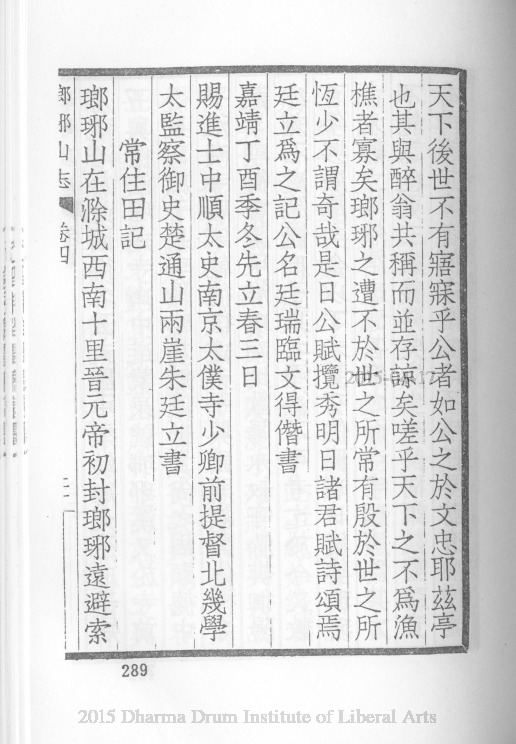 天下後世不有寤寐乎公者如公之於文忠耶茲亭
也其與醉翁共稱而並存諒矣嗟乎天下之不為漁
樵者寡矣瑯琊之遭不於世之所常有殷於世之所
恆少不謂奇哉是日公賦攬秀明日諸君賦詩頌焉
廷立為之記公名廷瑞臨文得僭書
嘉靖丁酉季冬先立春三日
賜進士中順太史南京太僕寺少卿前提督北幾學
太監察御史楚通山兩崖朱廷立書
常住田記
瑯琊山在滁城西南十里晉元帝初封瑯琊遠避索
瑯琊山志 卷四 二一
289
2015 Dharma Drum Institute of Liberal Arts